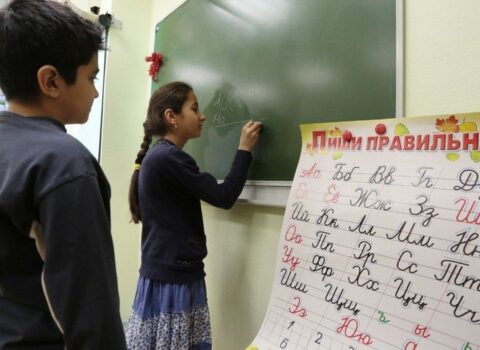 Пиши правильн
Аа Бб Вв Гг Д
Ее Ёё Жж Зз И
Йй Кк Лл Мм Нн
Оо Пп Рр Сс Тт
Уу Фф Хх Цц Чч
Шш Щщ ъ ы ь
Ээ Юю
1 2